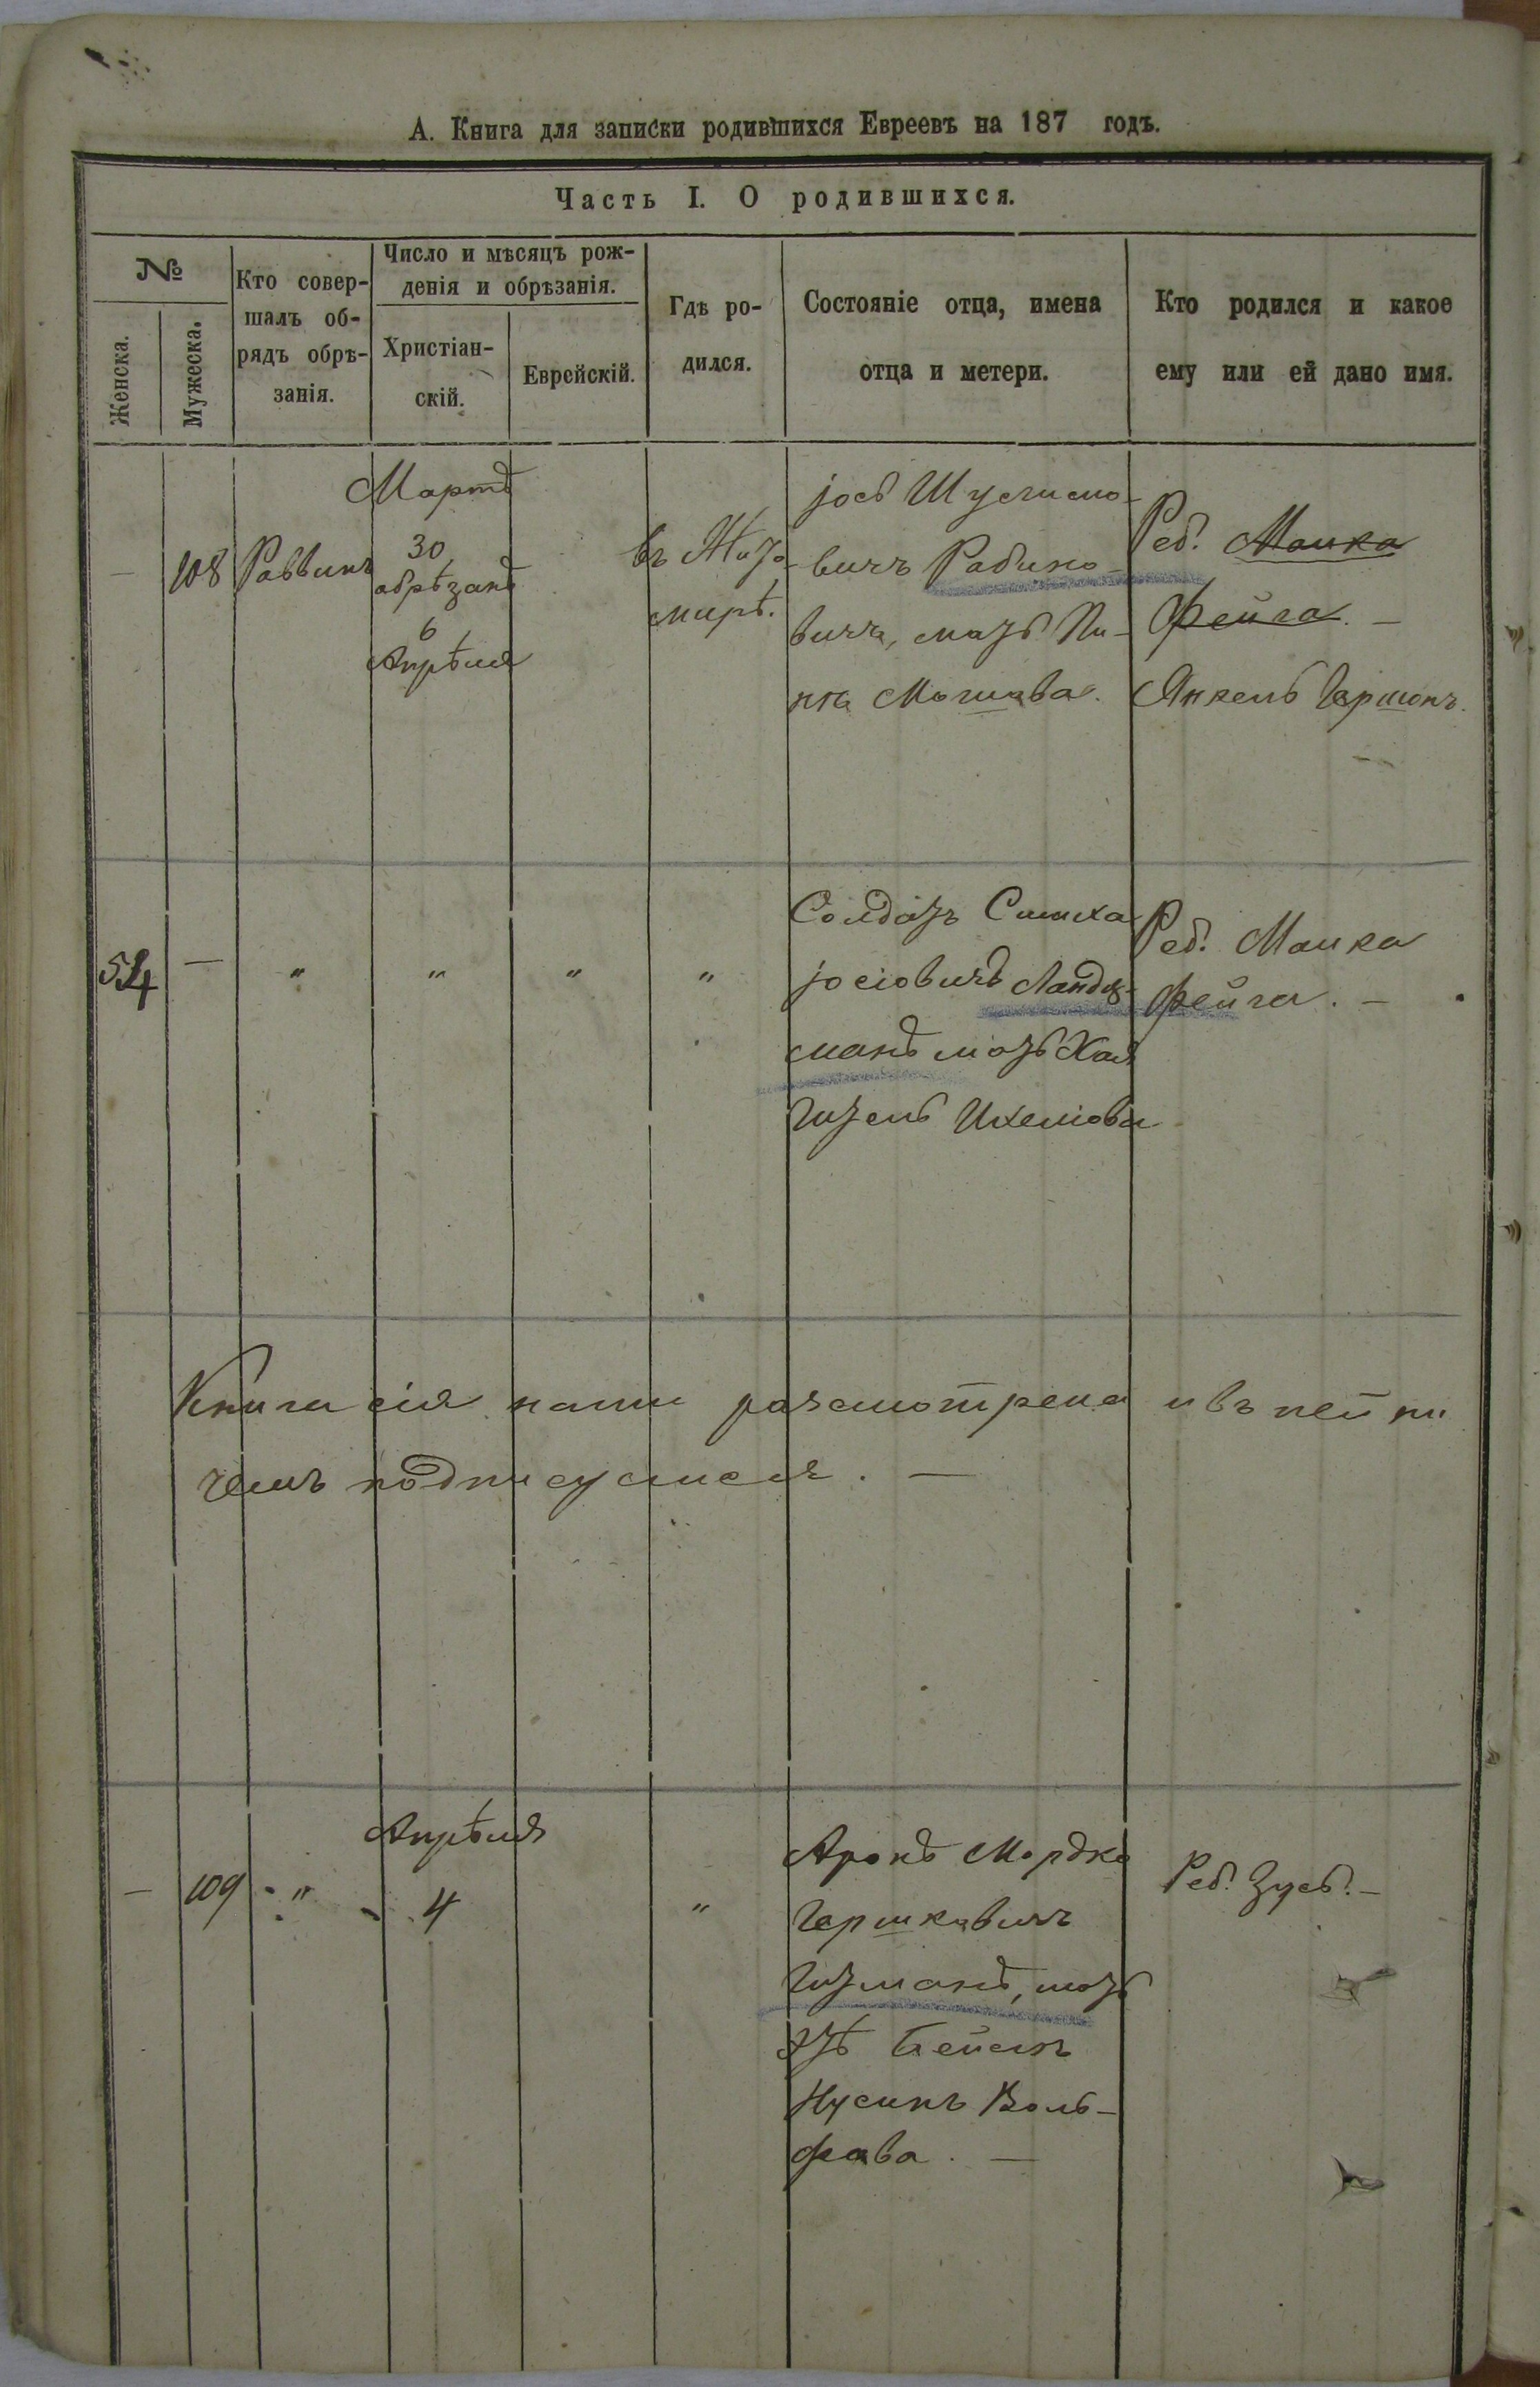 А. Книга для записки родившихся Евреевъ на 187 годъ.
Часть I. О родившихся.
№
Женска.
Мужеска.
Кто совер-
шалъ об-
рядъ обрѣ-
занія.
Число и мѣсяцъ рож-
денія и обрѣзанія.
Христіан-
скій.
Еврейскій.
Гдѣ ро-
дился.
Состояніе отца, имена
отца и метери.
Кто родился и какое
ему или ей дано имя.
—
108
Раввинъ
Мартъ
30
обрѣзанъ
6
Апрѣля
въ Жито
мирѣ.
вичъ Рабино-
вичъ, мать
Реб. Малка
Фейга. —
Янкель Гершонъ.
54
—
"
"
"
"
Солдатъ Симха
Іосіовичъ Ландц-
манъ мать Хая
Гитель
Реб. Малка
Фейга. —
Книга сія нами разсмотрена и въ ней ни
чемъ подписуемся. —
—
109
"
Апрѣля
4
"
Аронъ Мордко
Гершковичъ
мать
Бейла
Нусинъ Воль-
фова. —
Реб. Зусь. —